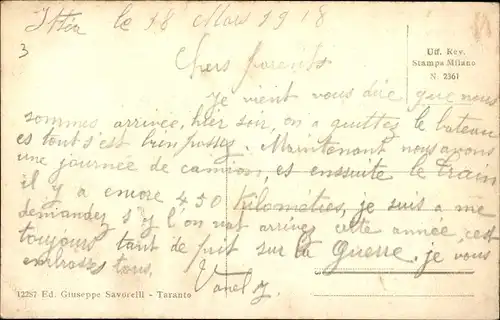 le 18 Mars 1918
3
Uff. Rev.
Stampa Milano
N 2361
Chers parents
Je vient vous dire que nous
sommes arrivée, hier soir, on a quittez le bateau
es tout s'est bien passez. Maintenant nous avons
une journée de camion, es enssuite le train
il y a encore 450 kilométres, je suis a me
demandez s'y l'on vat arrivez cette année, c'est
toujours tant de prit sur la Guerre. je vous
embrasses tous.
12287 Ed. Giuseppe Savorelli - Taranto